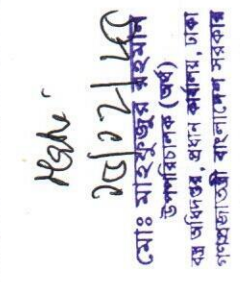 মোঃ মাহফুজুর রহমান
উপপরিচালক (অর্থ)
বস্ত্র অধিদপ্তর, প্রধান কার্যালয়, ঢাকা
গণপ্রজাতন্ত্রী বাংলাদেশ সরকার